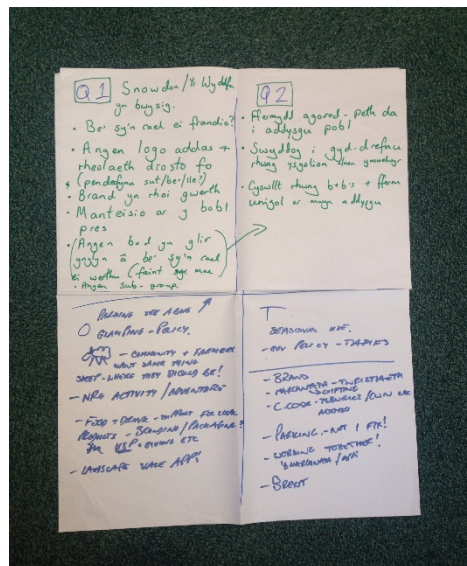 Q1 Snowdon/Yr Wyddfa
yn bwysig.
• Be' sy'n cael ei frandio?
• Angen logo addas +
rheolaeth drosto fo
(penderfynu sut/be'/lle?)
• Brand yn rhoi gwerth
• Manteisio ar y bobl
pres
• (Angen bod yn glir
ynglyn â be' sy'n cael
ei werthu (faint
• Angen sub-group.
Q2
• Ffermydd agored - peth da
i addysgu pobl
• Swyddog i gyd-drefnu
rhwng ysgolion
• Cyswllt rhwng b+b's + fferm
unigol ar mwyn addysgu
PARKING
O GLAMPING - POLICY.
- COMMUNITY + FARMERS
WANT SAME THING
SHEEP - WHERE THEY SHOULD BE!
- NRG ACTIVITY/ADVENTURE
- FOOD + DRINK - SUPPORT FOR LOCAL
PRODUCTS - BRANDING/PACKAGING?
USP + GIVING ETC
- LANDSCAPE SCALE APP?
T
SEASONAL USE.
- GOV POLICY -
- BRAND
- TWRISTIAETH
- C. CODE -
- PARKING - NOT 1 FIX!
- WORKING TOGETHER!
- BREXIT